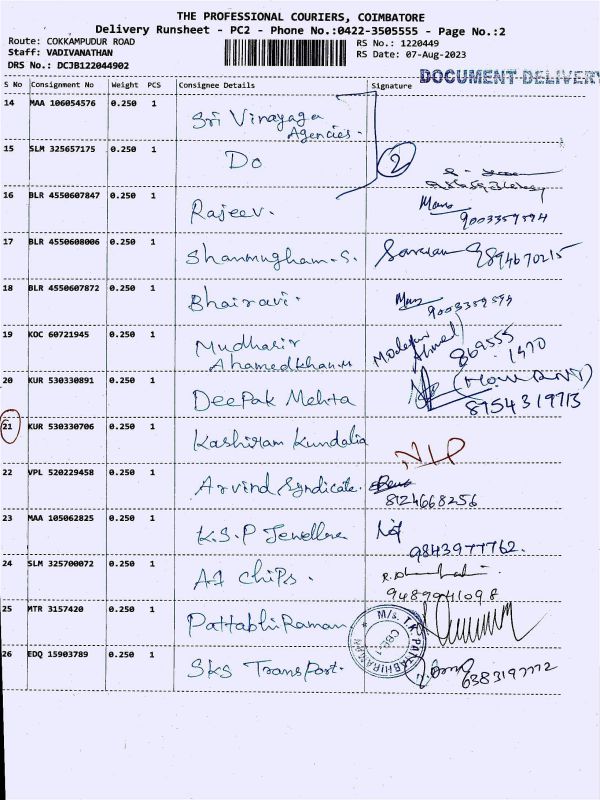 THE PROFESSIONAL COURIERS, COIMBATORE
Delivery Runsheet - PC2 - Phone No.:0422-3505555 - Page No.:2
Route: COKKAMPUDUR ROAD
RS No.: 1220449
Staff: VADIVANATHAN
RS Date: 07-Aug-2023
DRS No.: DCJB122044902
DOCUMENT DELIVERY
S No Consignment No Weight PCS Consignee Details Signature
14 MAA 106054576 0.250 1 Sri Vinayaga Agencies.
15 SLM 325657175 0.250 1 Do 2
16 BLR 4550607847 0.250 1 Rajeev. 9003359594
17 BLR 4550608006 0.250 1 Shanmugham.S. 9894670215
18 BLR 4550607872 0.250 1 Bhairavi. 9003359594
19 KOC 60721945 0.250 1 Mudhasir Ahamedkhan.M 869555 1470
20 KUR 530330891 0.250 1 Deepak Mehta 8754319713
21 KUR 530330706 0.250 1 Kashiram Kundalia N/P
22 VPL 520229458 0.250 1 Arvind Syndicate. 8124668256
23 MAA 105062825 0.250 1 K.S.P Jewellers 9843977762.
24 SLM 325700072 0.250 1 A1 Chips. 9489941098
25 MTR 3157420 0.250 1 Pattabhi Raman M/s. T.K. PATTABHIRAMAN CBE-1
26 EDQ 15903789 0.250 1 SKS Transport. 6383197772